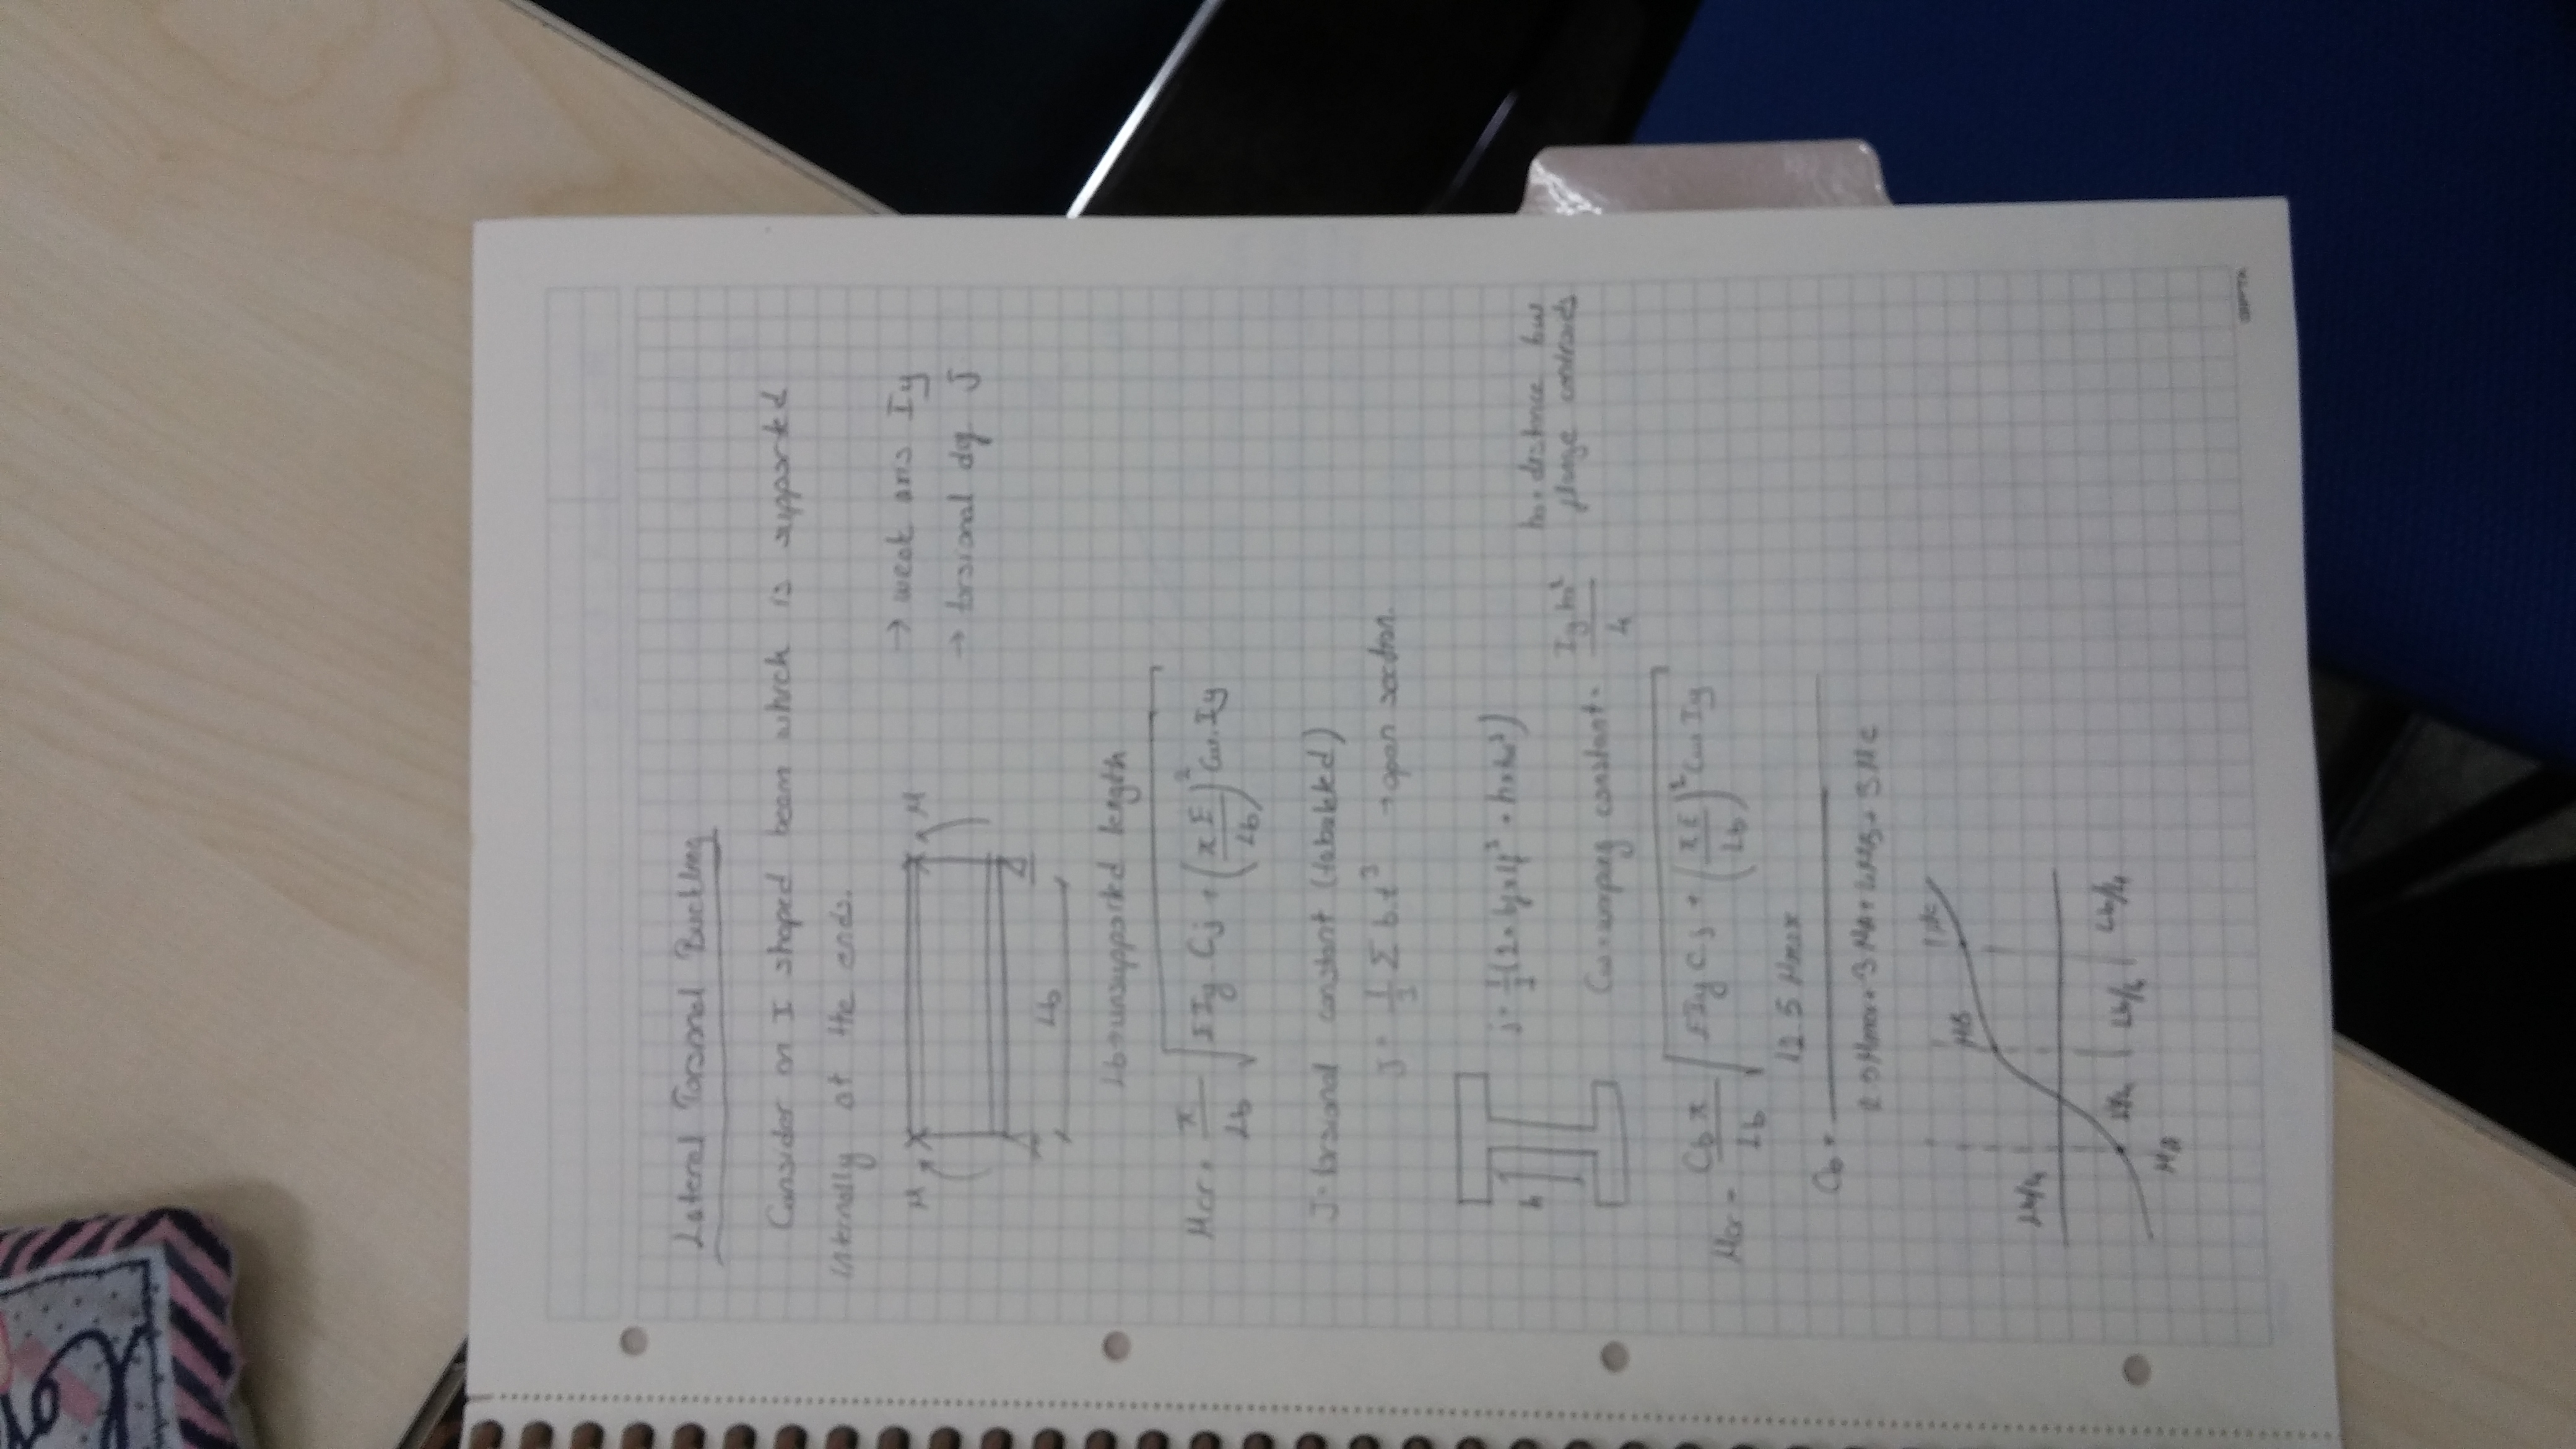 Lateral Torsional Buckling
Consider an I shaped beam which is supported
internally at the ends.
M M → weak axis Iy
→ torsional dg. J
Lb
Lb → unsupported length
Mcr = π/Lb √(EIy Cj + (πE/Lb)² Cw.Iy)
J = torsional constant (tabulated)
J = 1/3 Σ b.t³ → open section.
h
j = 1/3 (2 × bf × tf³ + h × tw³)
ho = distance bw
flange centroids
Cw = warping constant = Iy.ho²/4
Mcr = Cb π/Lb √(EIy Cj + (πE/Lb)² Cw Iy)
Cb = 12.5 Mmax / 2.5 Mmax + 3 MA + 4 MB + 3 Mc
MB Mc
Lb/4
Lb/4 Lb/4 Lb/4
MA